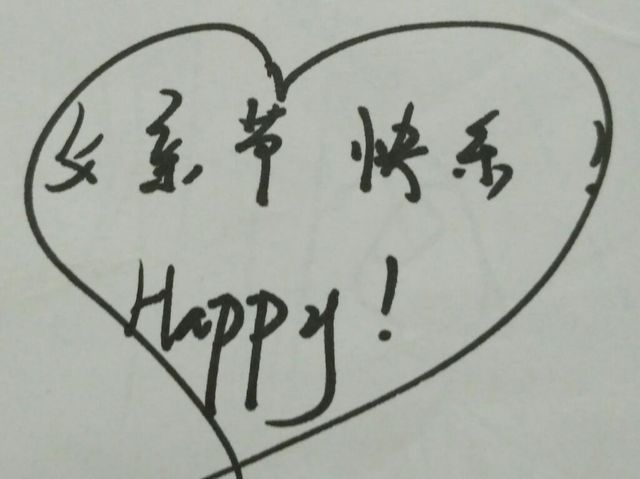 父亲节快乐!
Happy!